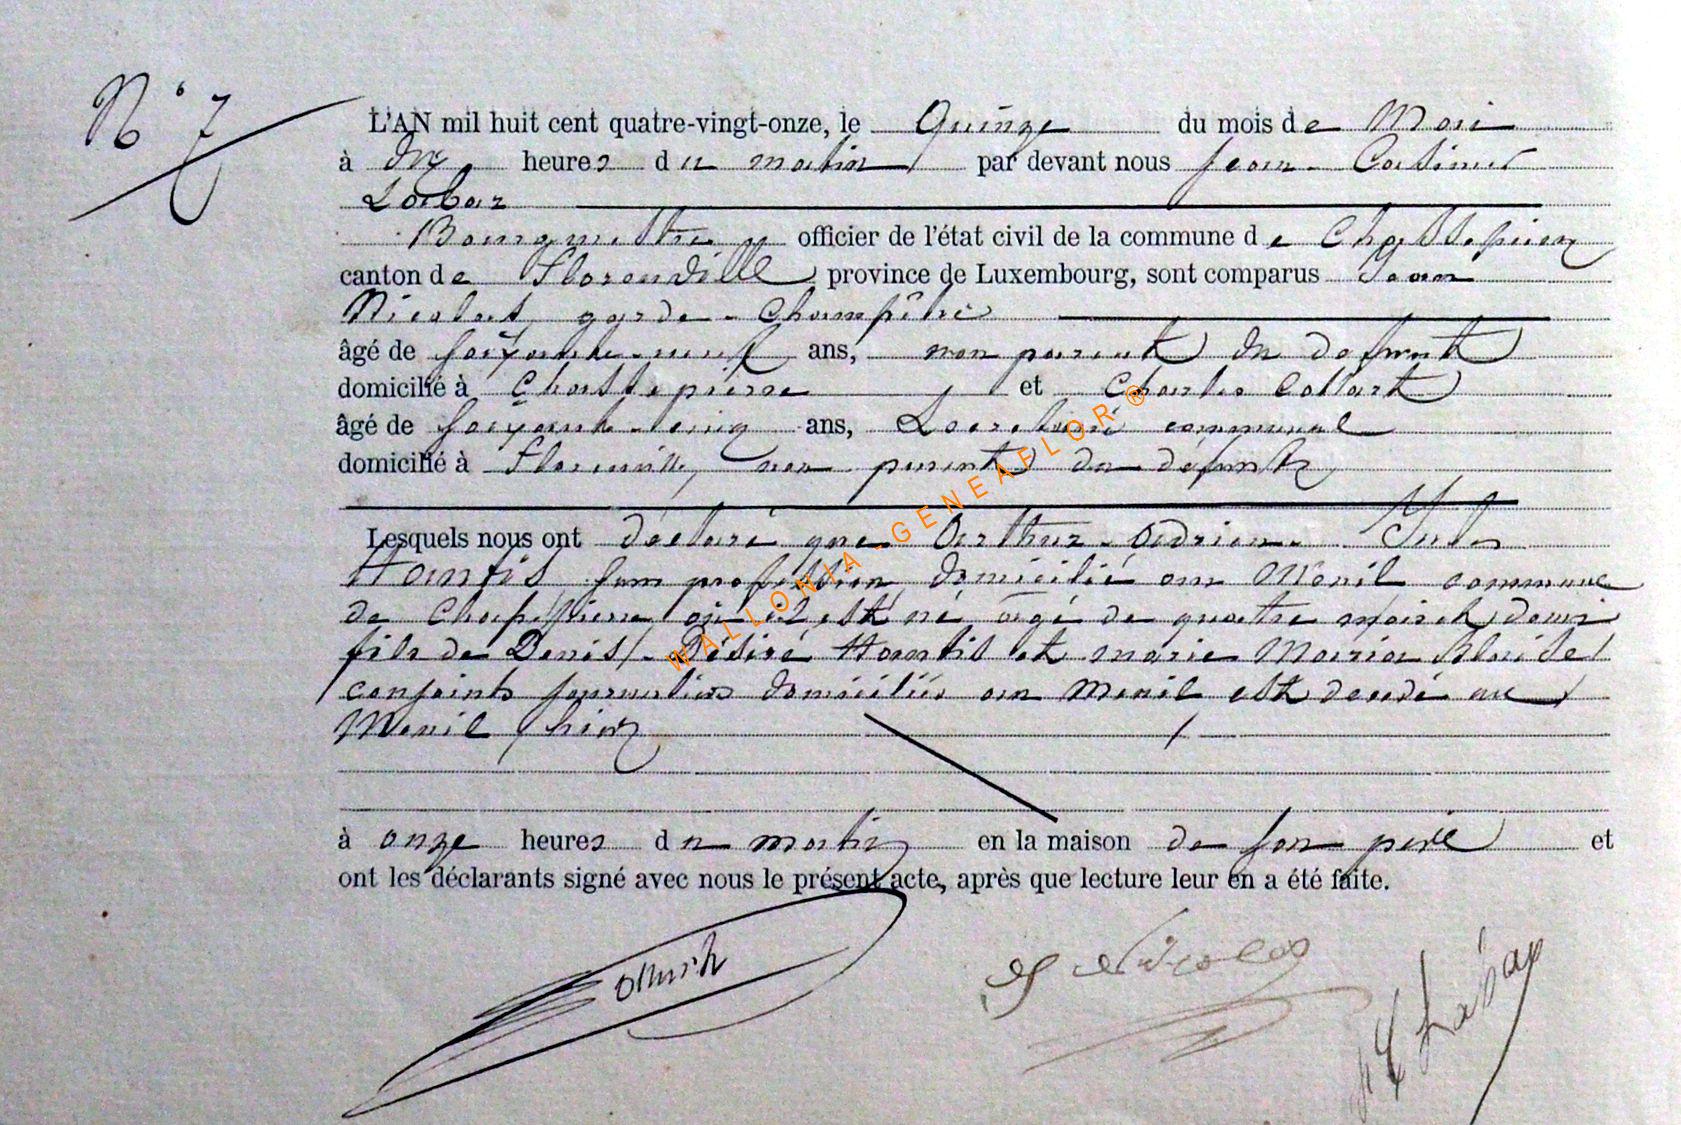 N° 7
L'AN mil huit cent quatre-vingt-onze, le Quinze du mois de Mai
à dix heures du matin par devant nous Jean-Casimir
Labar
Bourgmestre officier de l'état civil de la commune de Chassepierre
canton de Florenville province de Luxembourg, sont comparus Jean
Nicolas, garde-Champêtre
âgé de soixante-neuf ans, non parent du defunt
domicilié à Chassepierre et Charles Collart
âgé de soixante-cinq ans, Secretaire communal
domicilié à Florenville, non parent du defunt
Lesquels nous ont déclaré que Arthur-Adrien-Jules
Hantis sans profession domicilié au Menil commune
de Chassepierre où il est né âgé de quatre mois et demi
fils de Denis-Désiré Hantis et Marie Maria
conjoints journaliers domiciliés au Menil est decedé au
Menil hier
à onze heures du matin en la maison de son père et
ont les déclarants signé avec nous le présent acte, après que lecture leur en a été faite.
Collart Nicolas Labar
WALLONIA-GENEAFLOR®